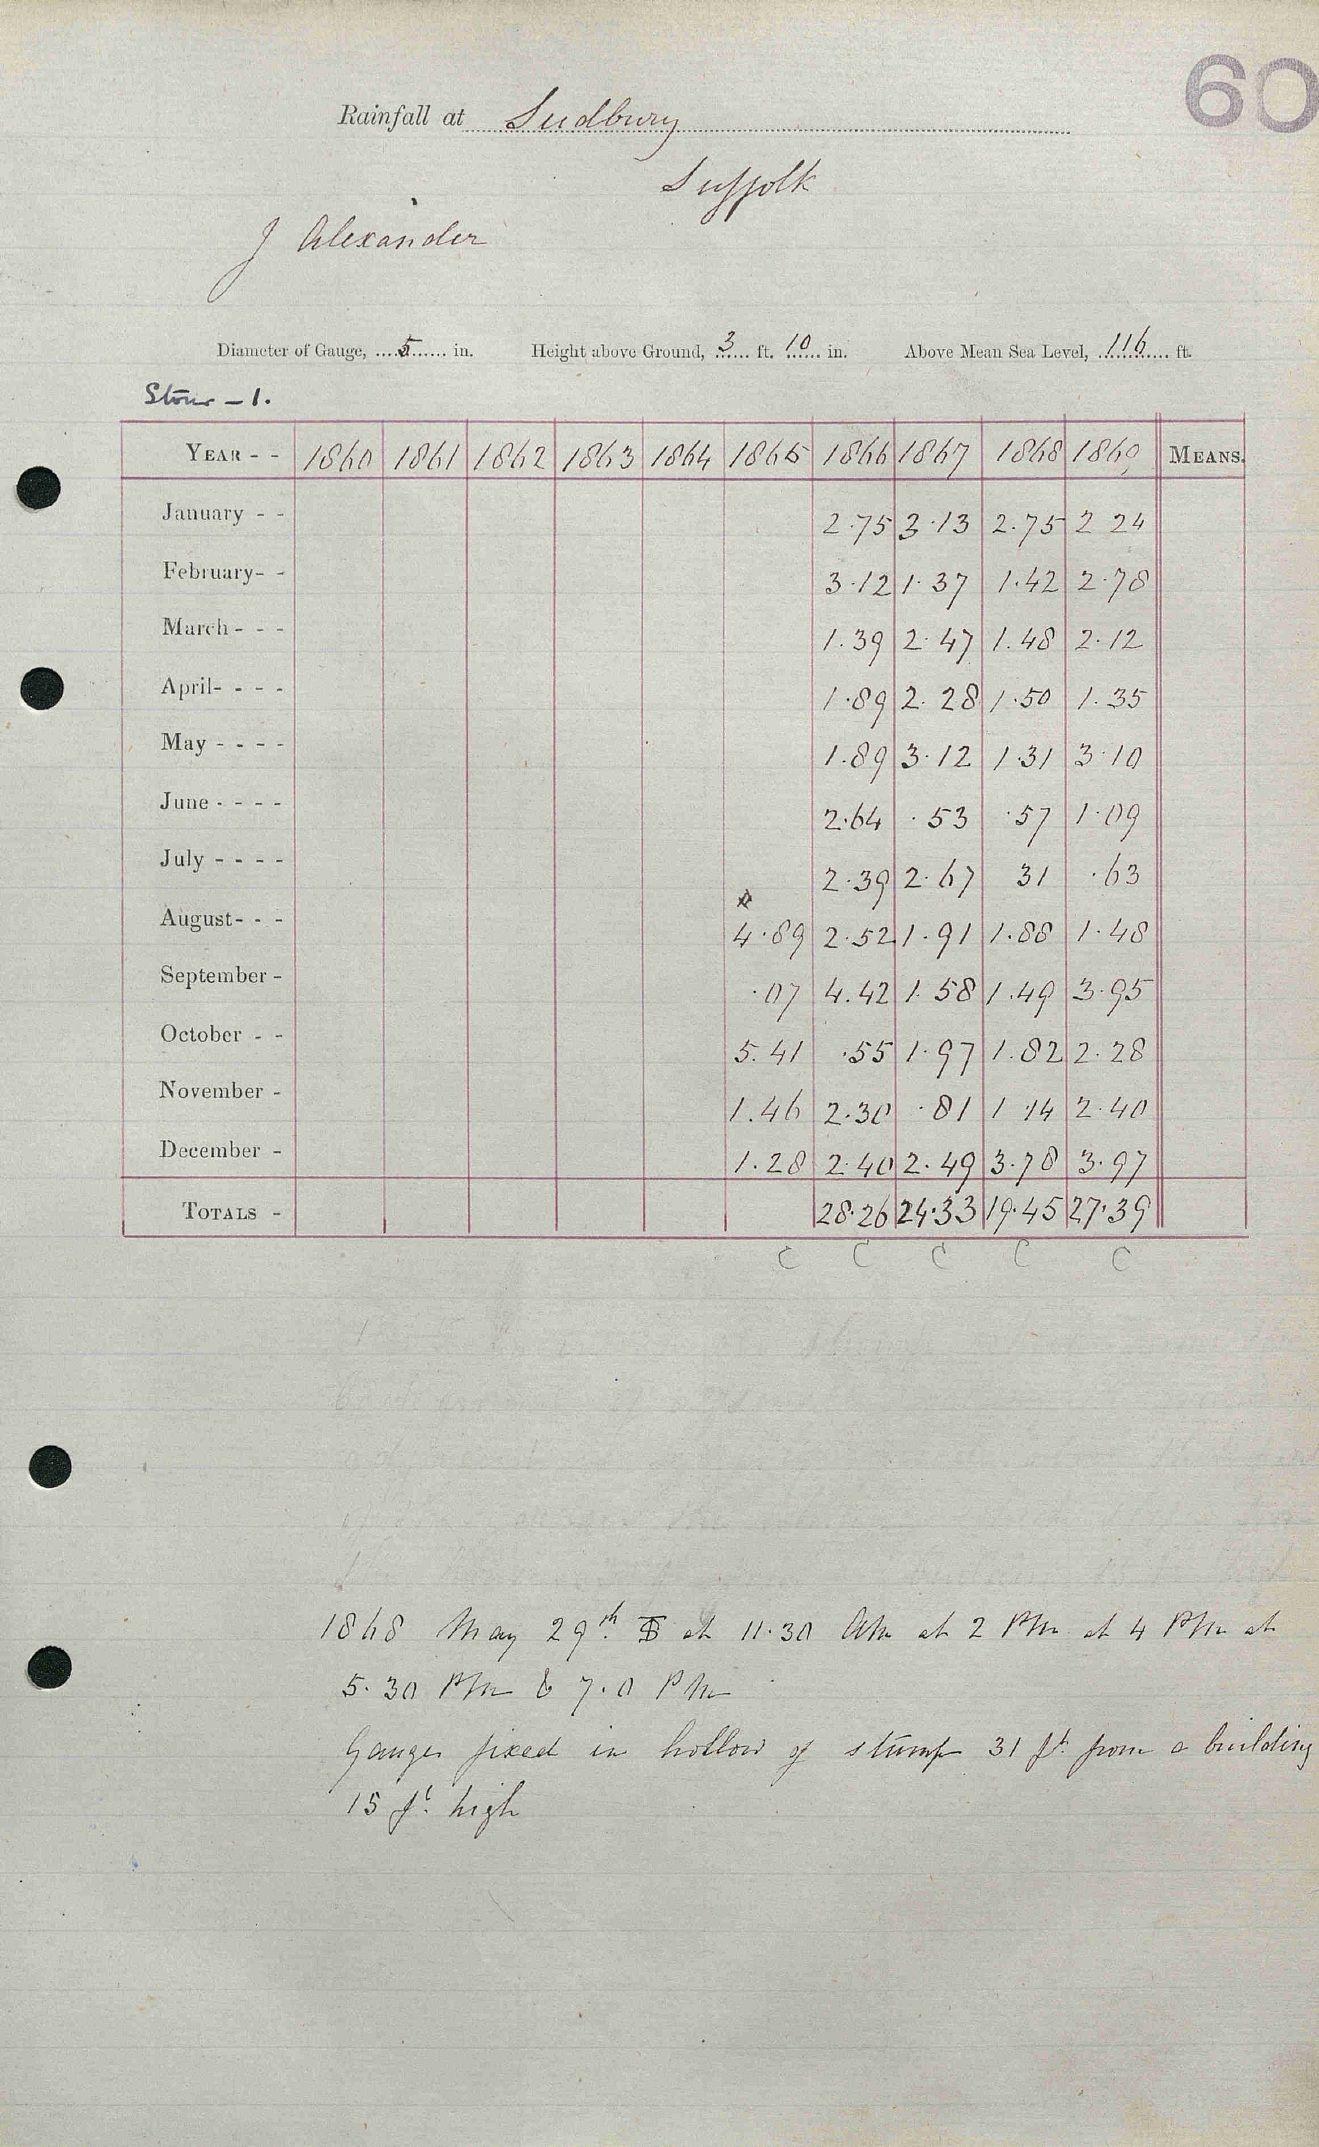 60
Rainfall at Sudbury
Suffolk
J Alexander
Diameter of Gauge, 5 in. Height above Ground, 3 ft. 10 in. Above Mean Sea Level, 116 ft.
Stour – 1.
YEAR - - 1860 1861 1862 1863 1864 1865 1866 1867 1868 1869 MEANS.
January - - 2.75 3.13 2.75 2 24
February- - 3.12 1.37 1.42 2.78
March - - - 1.39 2.47 1.48 2.12
April- - - - 1.89 2.28 1.50 1.35
May - - - - 1.89 3.12 1.31 3.10
June - - - - 2.64 .53 .57 1.09
July - - - - 2.39 2.67 31 .63
August- - - 4.89 2.52 1.91 1.88 1.48
September - .07 4.42 1.58 1.49 3.95
October - - 5.41 .55 1.97 1.82 2.28
November - 1.46 2.30 .81 1.14 2.40
December - 1.28 2.40 2.49 3.78 3.97
TOTALS - 28.26 24.33 19.45 27.39
C C C C C
1868 May 29th at 11.30 AM at 2 PM at 4 PM at
5.30 PM & 7.0 PM
Gauge fixed in hollow of stump 31 ft from a building
15 ft. high